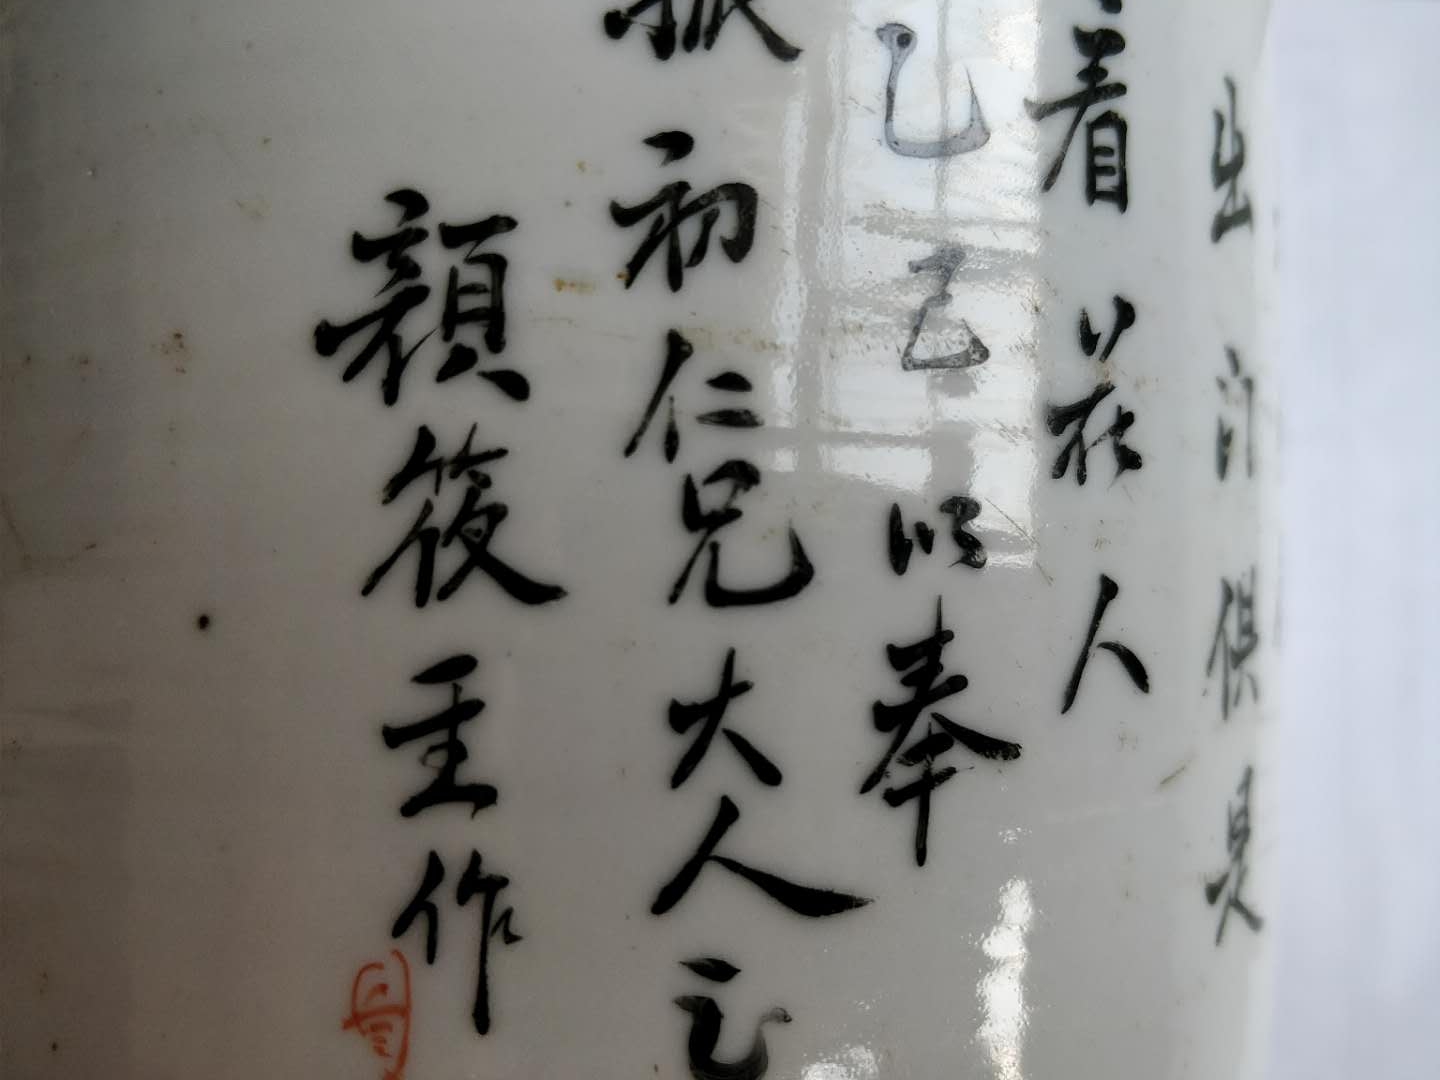 出門俱是
看花人
乙己以奉
振初仁兄大人正
顏筱圭作